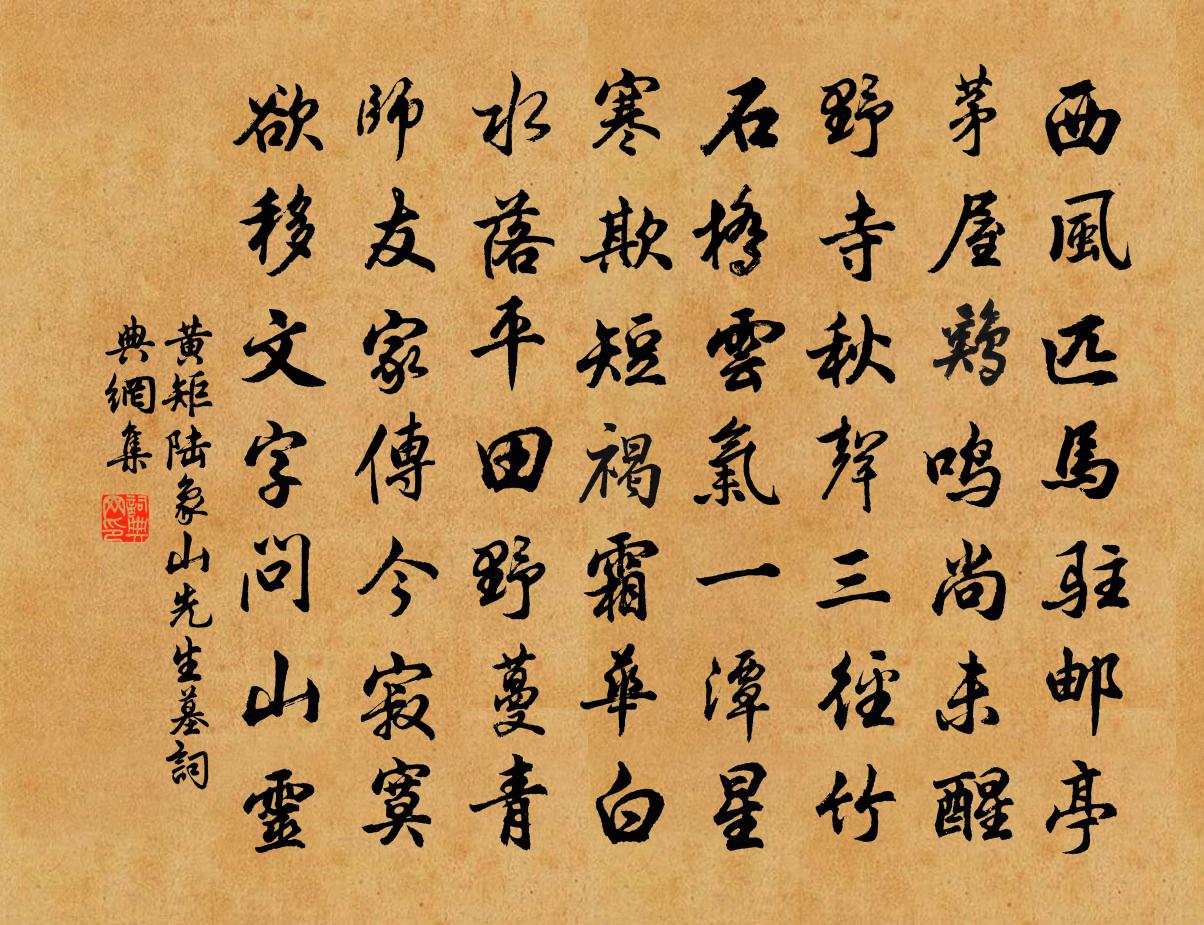 西風匹馬駐邮亭
茅屋鷄鳴尚未醒
野寺秋聲三徑竹
石橋雲氣一潭星
寒欺短褐霜華白
水落平田野蔓青
師友家傳今寂寞
欲移文字問山靈
黄矩陸象山先生墓詞
典網集
詞典網印